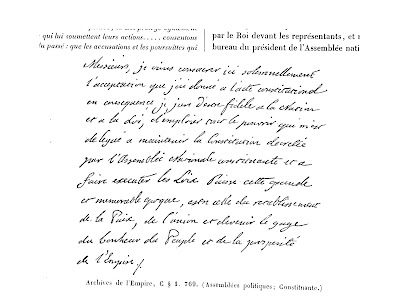 qui lui soumettent leurs actions..... consentons
la passé : que les accusations et les poursuites qui
par le Roi devant les représentants, et
bureau du président de l'Assemblée nati
Messieurs, je viens consacrer ici solemnellement
l'acceptation que j'ai donné a l'acte constitutionel
en consequence je jure d'etre fidele a la nation
et a la Loi, d'employer tout le pouvoir qui m'est
delegué a maintenir la Constitution decretée
par l'Assemblée nationale constituante et a
faire executer les Loix Puisse cette grande
et memorable epoque, etre celle du retablissement
de la Paix, de l'union et devenir le gage
du bonheur du Peuple et de la prosperité
de l'Empire /.
Archives de l'Empire, C § 1. 769. (Assemblées politiques; Constituante.)